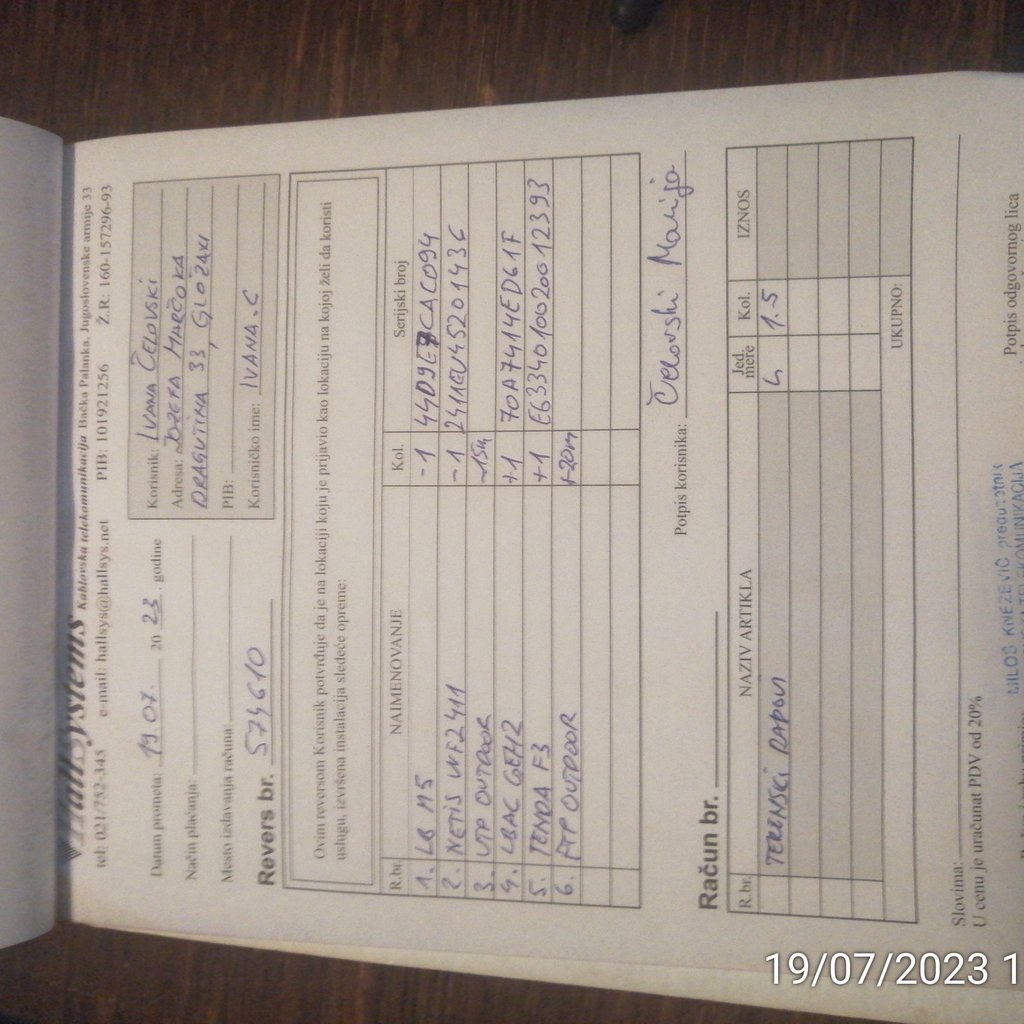 Hallsystems Kablovska telekomunikacija Bačka Palanka, Jugoslovenske armije 33
tel: 021/752-345 e-mail: hallsys@hallsys.net PIB: 101921256 Ž.R: 160-157296-93
Datum prometa: 19.07. 20 23. godine
Način plaćanja:
Mesto izdavanja računa:
Revers br. 574610
Korisnik: IVANA ČELOVSKI
Adresa: JOZEFA MARČOKA
DRAGUTINA 33, GLOŽAN
PIB:
Korisničko ime: IVANA.C
Ovim reversom Korisnik potvrđuje da je na lokaciji koju je prijavio kao lokaciju na kojoj želi da koristi
uslugu, izvršena instalacija sledeće opreme:
R.br. NAIMENOVANJE Kol. Serijski broj
1. LB M5 -1 44D9E7CAC094
2. NETIS WF2411 -1 2411EV45201436
3. UTP OUTDOOR -15m
4. LBAC GEN2 +1 70A7414ED61F
5. TENDA F3 +1 E6334010020012393
6. FTP OUTDOOR +20m
Potpis korisnika: Čelovski Marija
Račun br.
R.br. NAZIV ARTIKLA Jed. mere Kol. IZNOS
TERENSKI RADOVI 4 1.5
UKUPNO:
Slovima:
U cenu je uračunat PDV od 20%
Potpis odgovornog lica
MILOŠ KNEŽEVIĆ preduzetnik
TELEKOMUNIKACIJA
19/07/2023 1